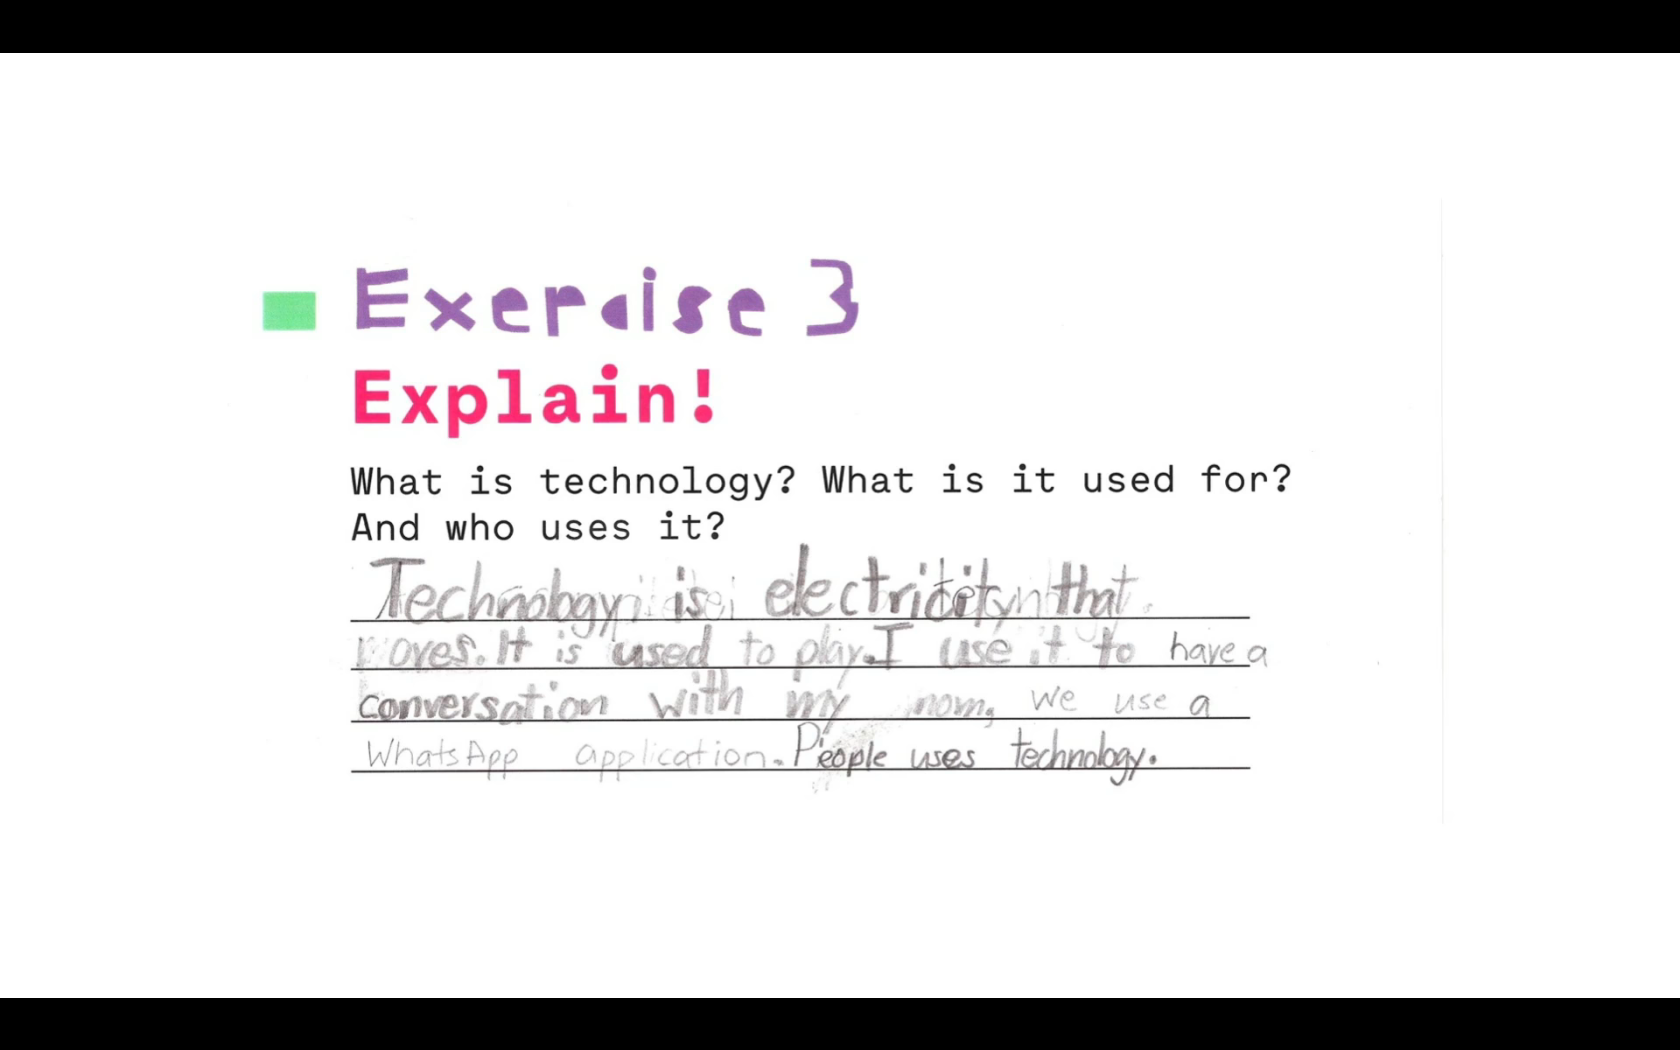 Exercise 3
Explain!
What is technology? What is it used for?
And who uses it?
Technology is electricity that
moves. It is used to play. I use it to have a
conversation with my mom, we use a
WhatsApp application. People uses technology.